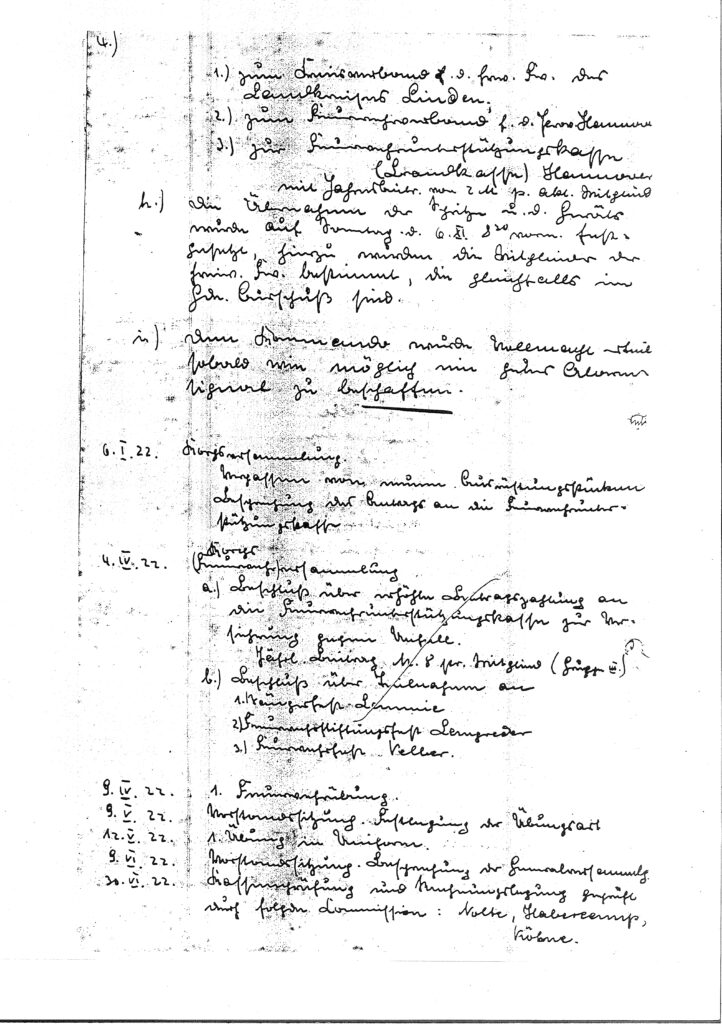 (4.)
1.) zum Kreisverband f. d. frw. Fw. des
Landkreises Linden,
2.) zum Feuerwehrverband f. d. Prov. Hannover
3.) zur Feuerwehrunterstützungskasse
(Brandkasse) Hannover
mit Jahresbeitr. von 2 M p. akt. Mitglied
h.) Die Übernahme der Spritze u. d. Geräts
wurde auf Sonntag d. 6. XI. 8 30 vorm. fest-
gesetzt, hierzu wurden die Mitglieder der
freiw. Fw. bestimmt, die gleichfalls im
Gde. Ausschuß sind.
i.) Dem Kommando wurde Vollmacht erteilt
sobald wie möglich ein gutes Alarm
signal zu beschaffen.
6. I. 22. Korpsversammlung.
Verpassen von neuen Ausrüstungsstücken
Besprechung des Antrags an die Feuerwehrunter-
stützungskasse
Korps
4. IV. 22. (Feuerwehr)versammlung
a.) Beschluß über erhöhte Beitragszahlung an
die Feuerwehrunterstützungskasse zur Ver-
sicherung gegen Unfall.
Jährl. Beitrag M. 8 pr. Mitglied (Gruppe III.)
b.) Beschluß über Teilnahme an
1. Sängerfest Lemmie
2) Feuerwehrstiftungsfest Lemgreder
3) Feuerwehrfest Velber.
9. IV. 22. 1. Feuerwehrübung.
9. V. 22. Vorstandssitzung. Festlegung der Übungsart
12. V. 22. 1. Übung in Uniform.
9. VI. 22. Vorstandssitzung. Besprechung der Generalversammlg.
30. VI. 22. Kassenprüfung und Rechnungslegung geprüft
durch folgde Commission: Nolte, Habercamp,
Köhne.